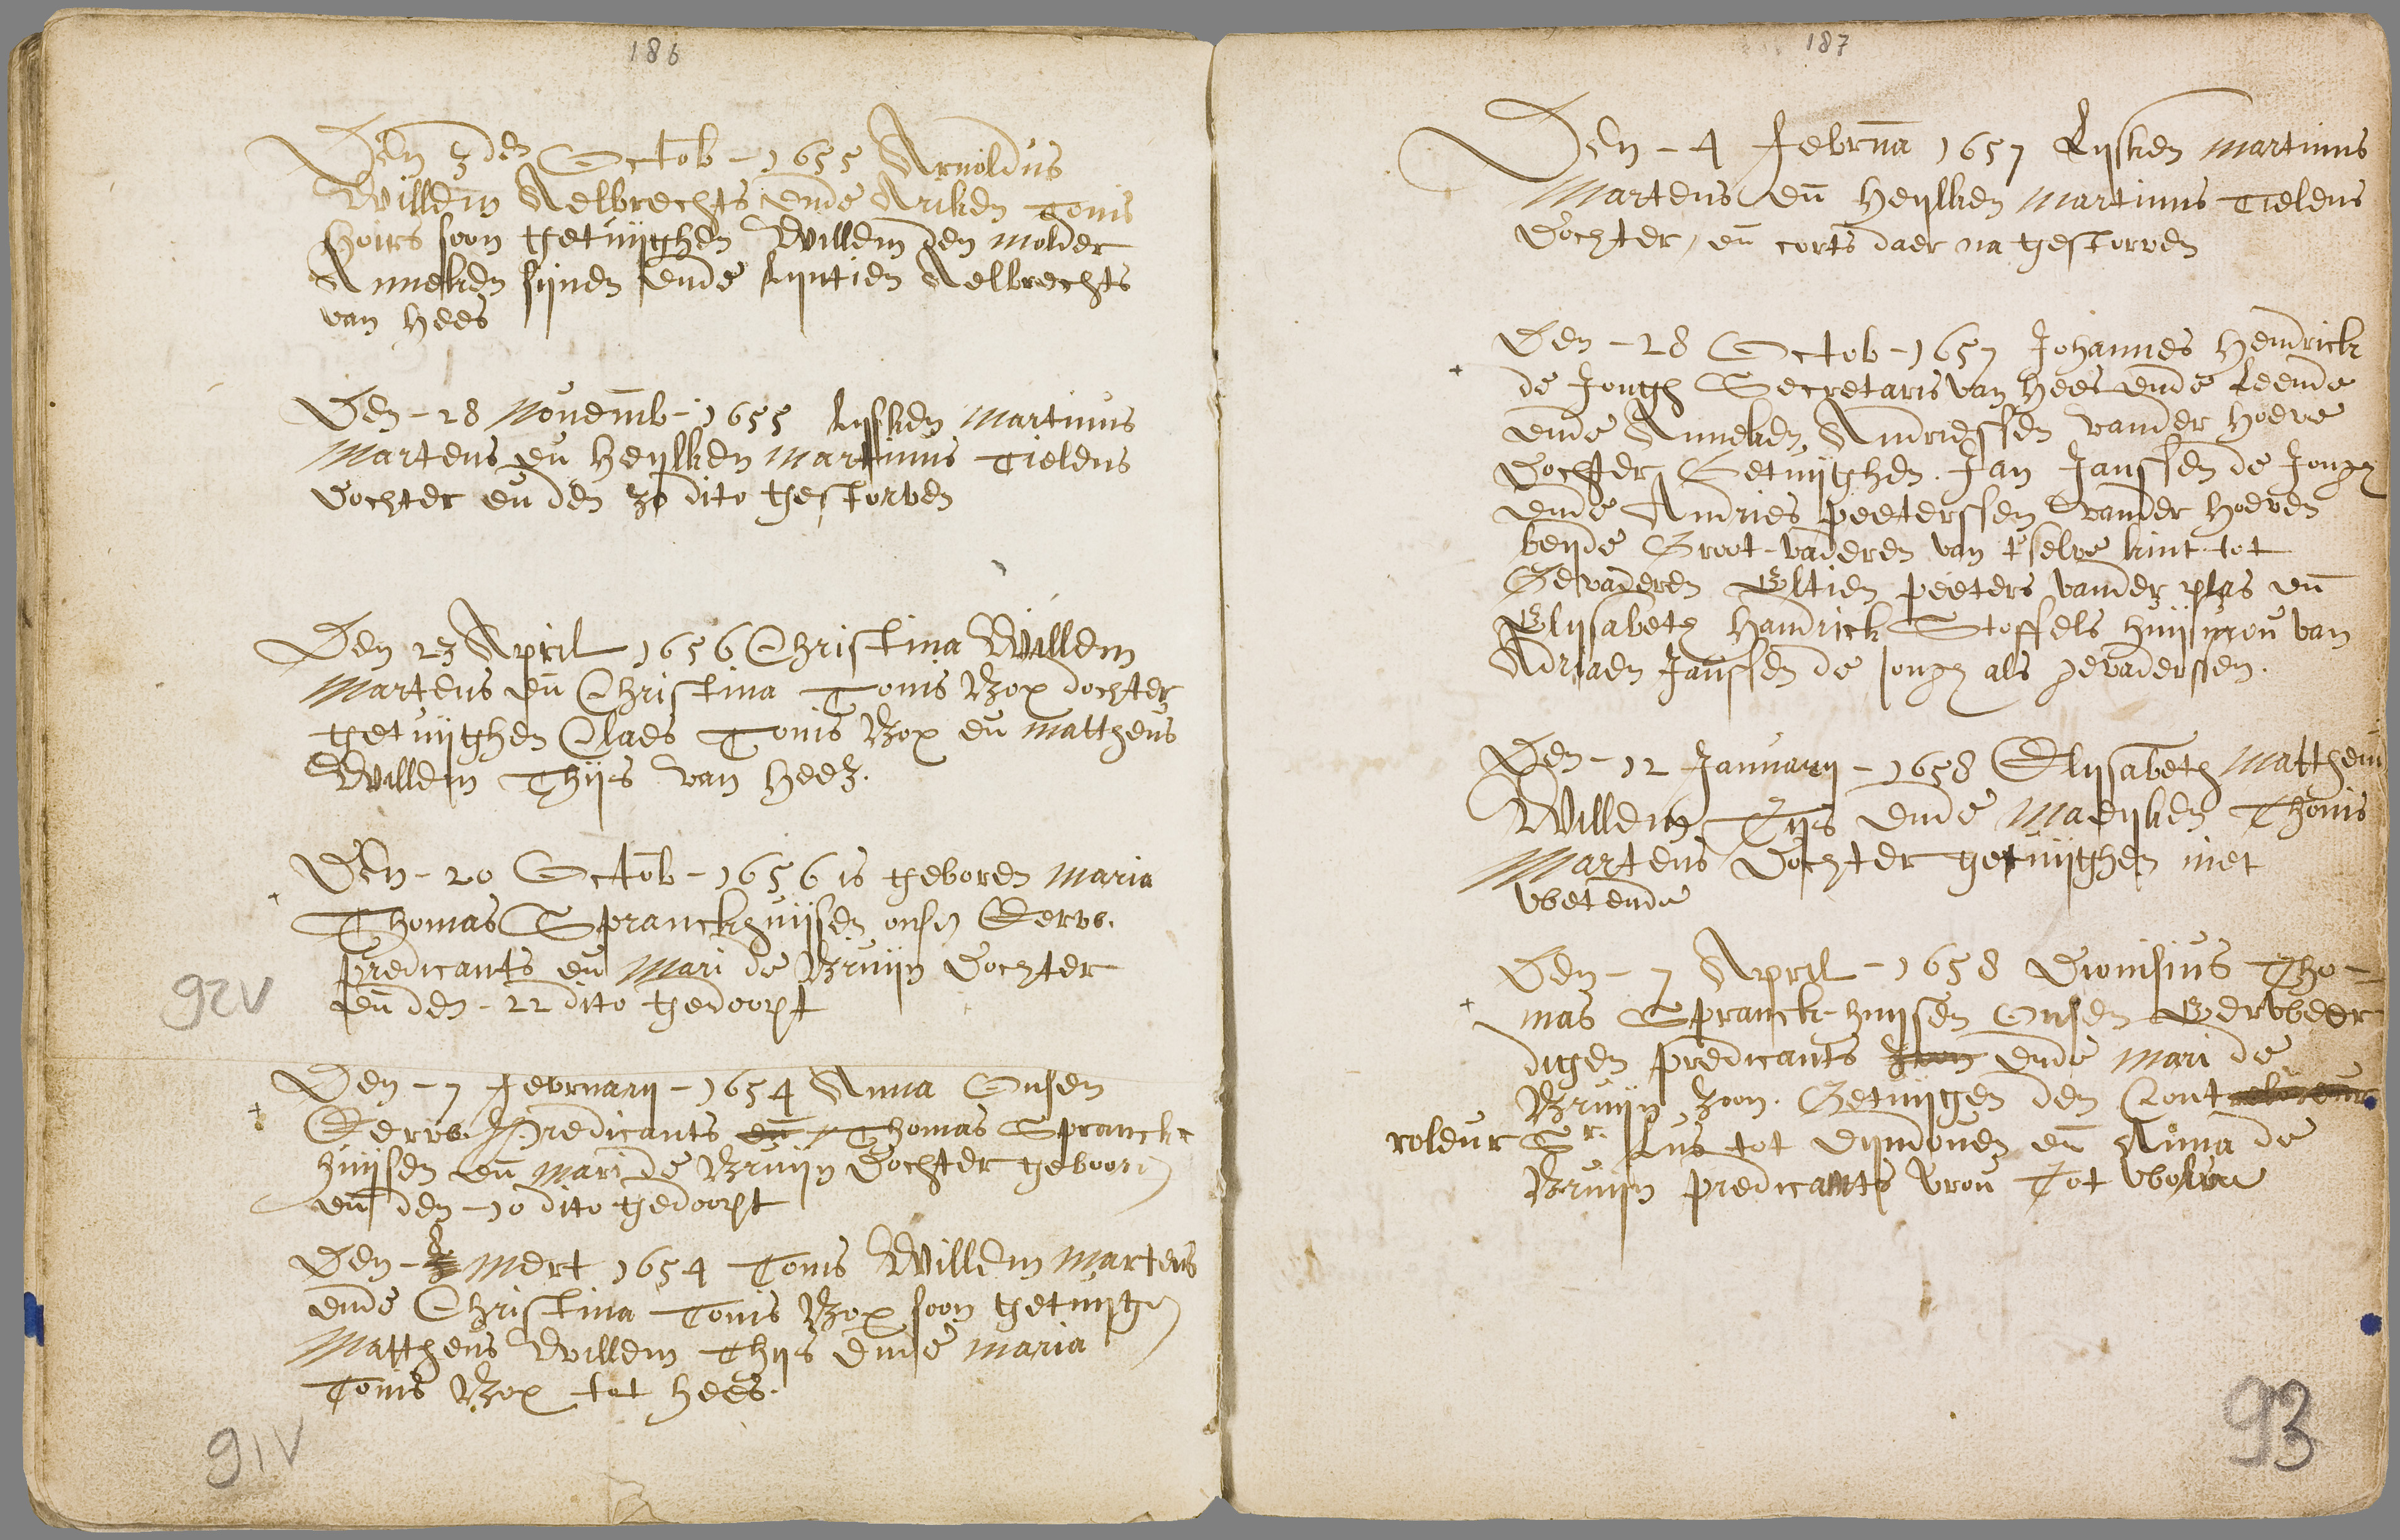 186
Den 3den Octob - 1655 Arnoldus
Willem Aelbrechts ende Ariken Tonis
soon getuijghen Willem den molder
Anneken sijnen ende lijntien Aelbrechts
van Hees
Den - 28 Novemb - 1655 lijsken Martinus
Martens en Heijlken Martinus Tielens
dochter en den 30 dito gestorven
Den 23 April 1656 Christina Willem
Martens en Christina Tonis Box dochter
getuijghen Claes Tonis Box en Mattheus
Willem Thijs van Heez.
Den - 20 Octob - 1656 is geboren Maria
Thomas Spranckhuijsen onsen Eerw.
predicants en Mari de Bruijn dochter
en den - 22 dito gedoopt
92V
Den - 7 Februarij - 1654 Anna Onsen
Eerw. Predicants en Thomas Spranck-
huijsen en Mari de Bruijn dochter geboren
en den - 10 dito gedoopt
Den - 8 Mert 1654 Tonis Willem Martens
ende Christina Tonis Box soon getuijgen
Mattheus Willem Thijs ende Maria
Tonis Box tot Hees.
91V
187
Den - 4 Februa 1657 Lijsken Martinus
Martens en Heijlken Martinus Tielens
dochter, en corts daer na gestorven
Den - 28 Octob - 1657 Johannes Hendrick
de Jongh Secretaris van Hees ende Leende
ende Anneken Andriessen vander Hoeve
dochter, Getuijghen. Jan Janssen de Jongh
ende Andries Peeterssen vander Hoeven
beijde Groot-vaderen van t'selve kint tot
Gevaderen Eltien Peeters vander plas en
Elijsabeth Handrick Stoffels huijsvrou van
Adriaen Janssen de Jongh als gevaderssen.
Den - 12 Januarij - 1658 Elijsabeth Mattheus
Willem Tijs ende Maeijken Thonis
Martens dochter getuijghen niet
wetende
Den - 7 April - 1658 Dionisius Tho-
mas Spranck-huijsen Onsen Eerweer
digen predicants soon ende Mari de
Bruijn zoon. Getuijgen den Cont
roleur Sr. Lus tot Eijndoven en Anna de
Bruijn predicants vrou Tot
93